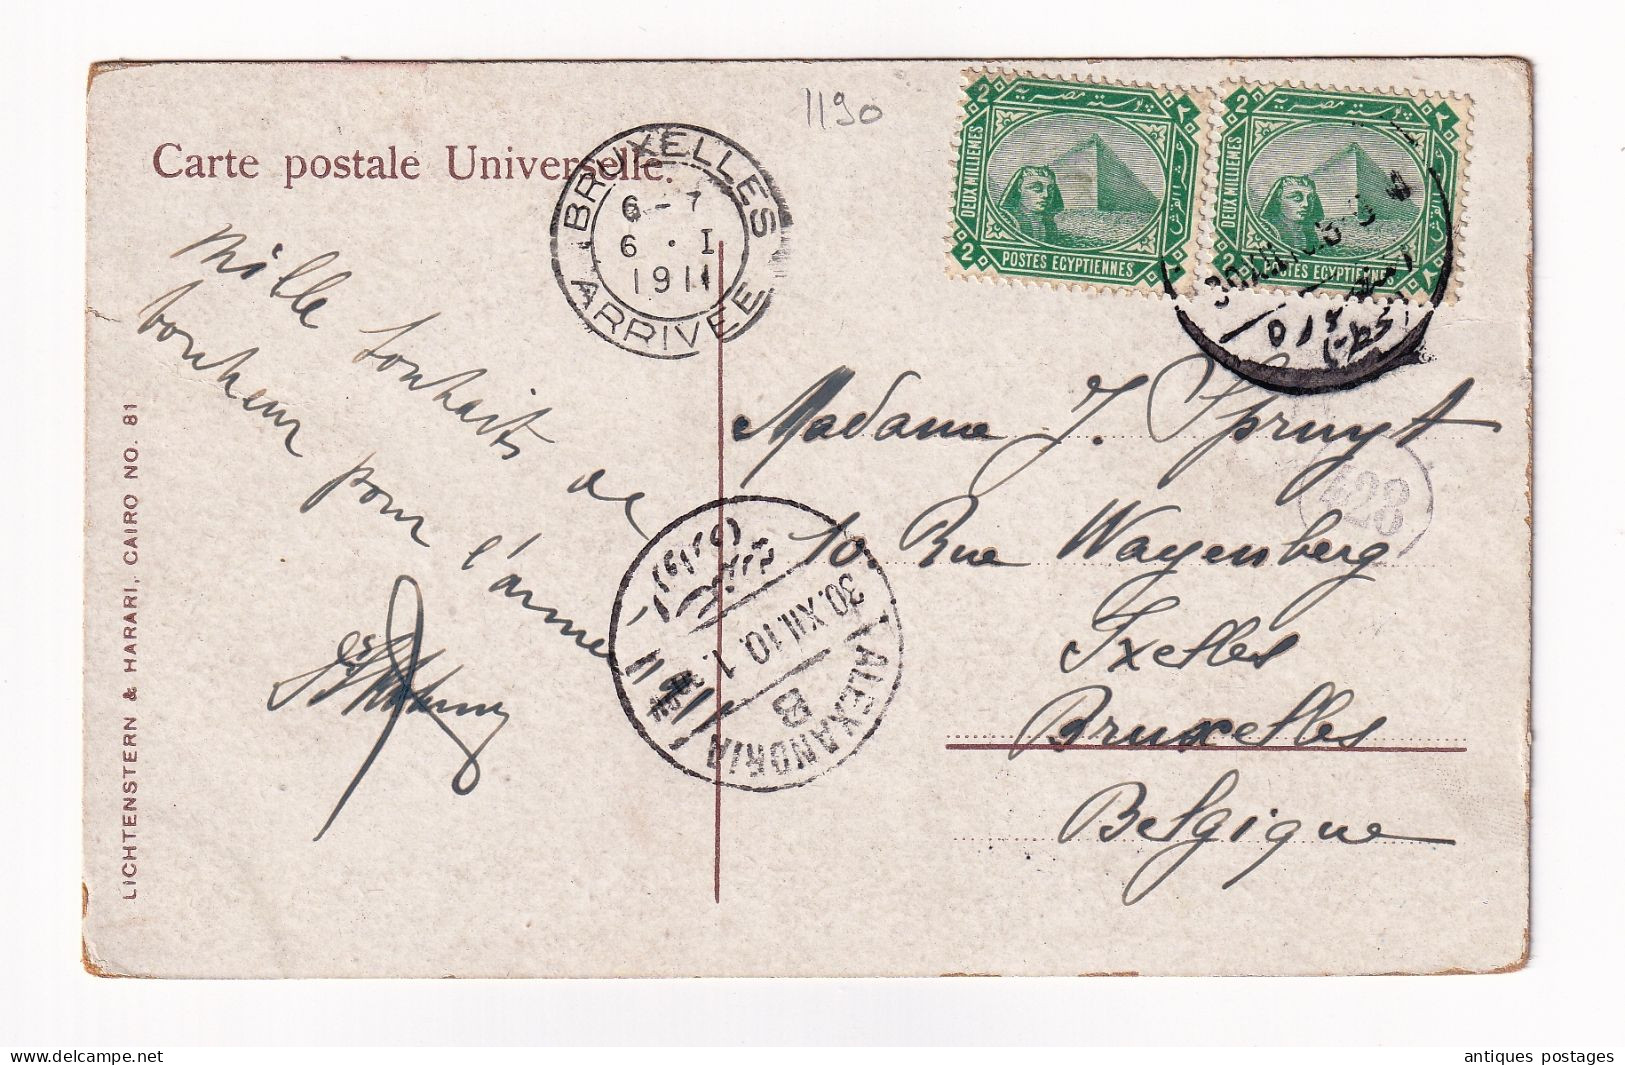 1190
Carte postale Universelle.
BRUXELLES
6 - 7
6 . I
1911
ARRIVÉE
بوسته مصرية
2
DEUX MILLIEMES
2
POSTES EGYPTIENNES
2
DEUX MILLIEMES
2
POSTES EGYPTIENNES
Mille souhaits de
bonheur pour l'année
Madame J. Spruyt
10. Rue Wayenberg
Ixelles
Bruxelles
Belgique
428
30.XII.10. 1.
ALEXANDRIA
B
LICHTENSTERN & HARARI, CAIRO NO. 81
www.delcampe.net
antiques postages